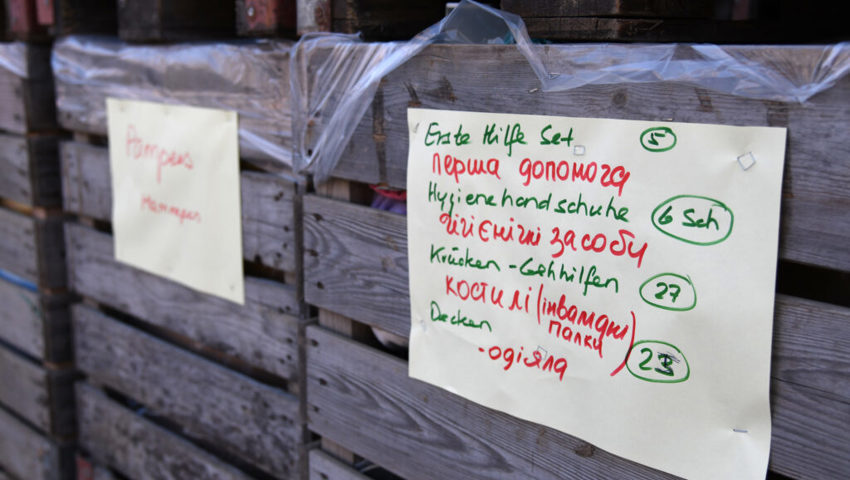 Pampers
Erste Hilfe Set 5
перша допомога
Hygienehandschuhe 6 Sch
гігієнічні засоби
Krücken - Gehhilfen 27
костилі (інвалідні
палки)
Decken
- одіяла